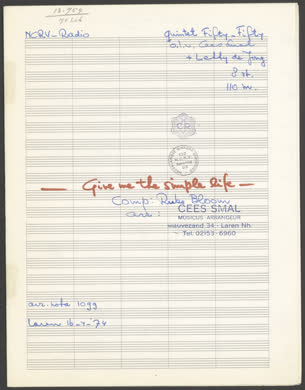 NCRV-Radio
Quintet Fifty-Fifty
o.l.v. Cees Smal
+ Letty de Jong
8 st.
110 m.
CR
— Give me the simple life —
Comp: Rube Bloom
arr:
CEES SMAL
MUSICUS ARRANGEUR
34 - Laren Nh.
Tel. 02153-6960
arr. nota 1099